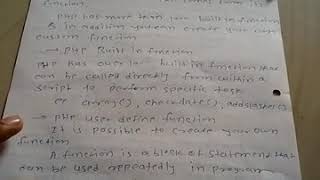 function
PHP has more than 1000 built in function
& in addition you can create your own
custom function
→ PHP Built in function
PHP has over 1000 built in function that
can be called directly from within a
script to perform specific task
eg array(), checkdate(), addslashes()
→ PHP user define function
It is possible to create your own
function
A function is a block of statement that
can be used repeatedly in program